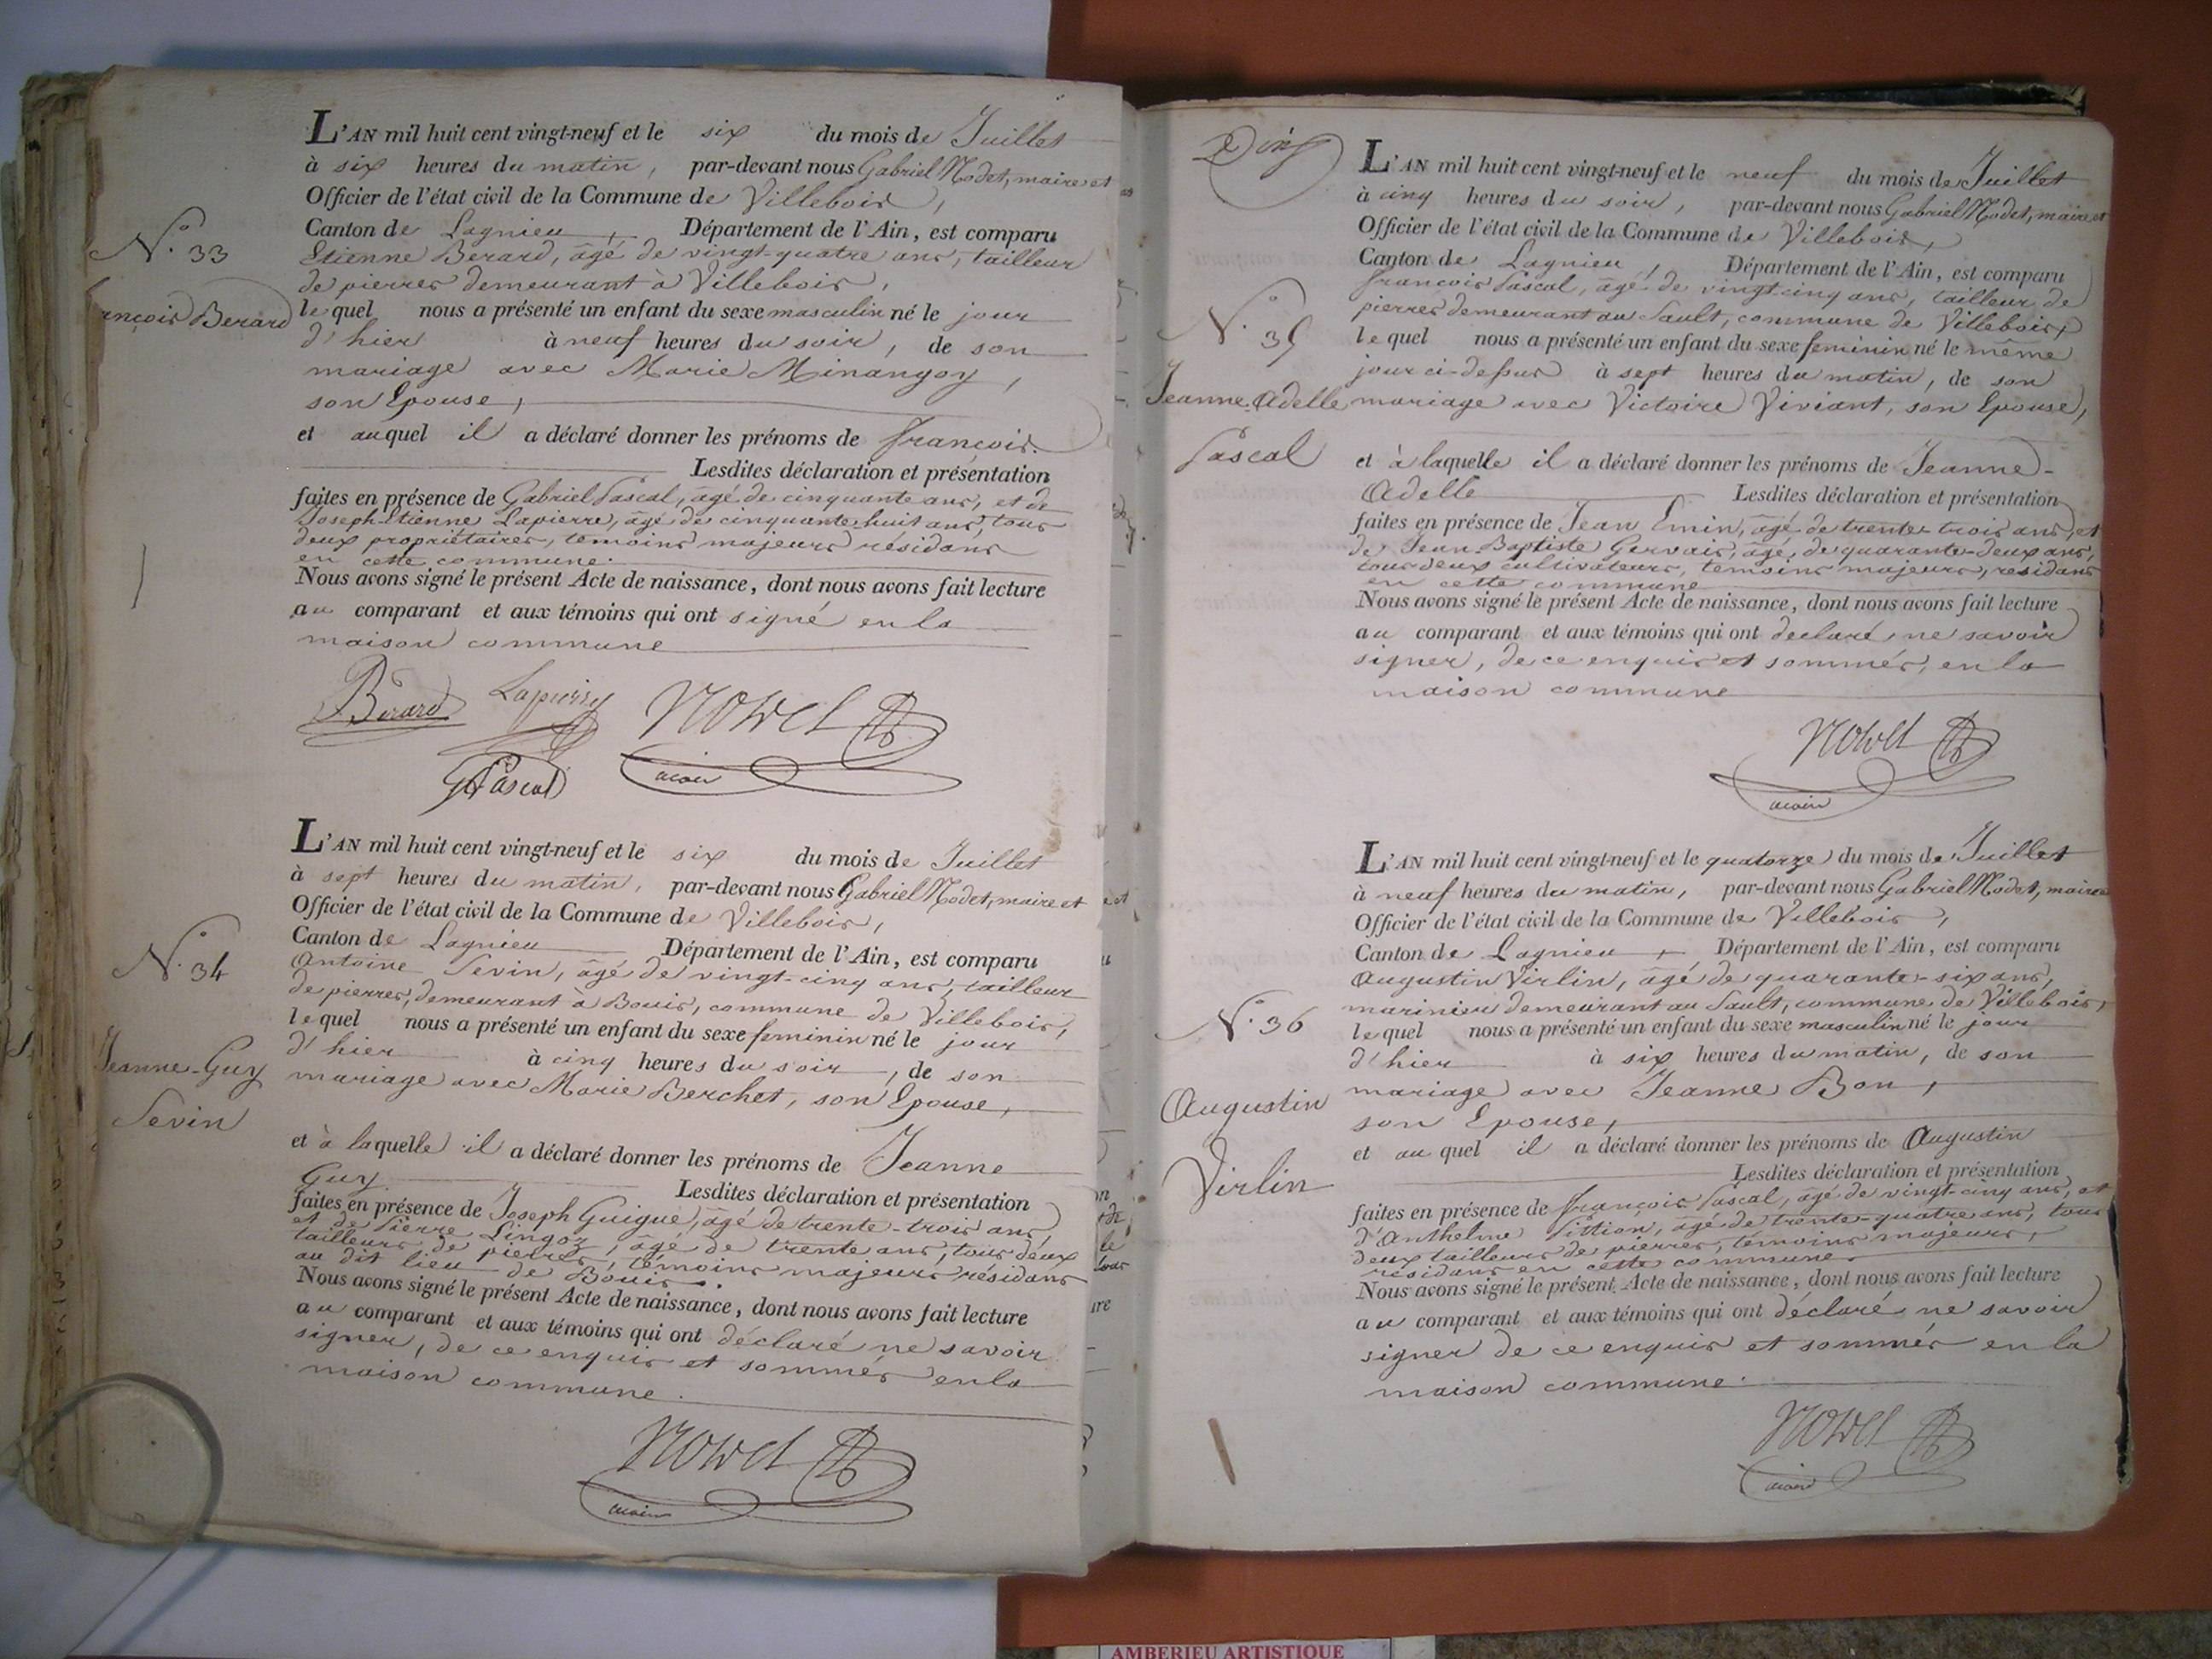 L'AN mil huit cent vingt-neuf et le six du mois de Juillet
à six heures du matin, par-devant nous Gabriel Nodet, maire et
Officier de l'état civil de la Commune de Villebois,
Canton de Lagnieu, Département de l'Ain, est comparu
Etienne Berard, âgé de vingt-quatre ans, tailleur
de pierres demeurant à Villebois,
N.° 33
ançois Berard
lequel nous a présenté un enfant du sexe masculin né le jour
d'hier à neuf heures du soir, de son
mariage avec Marie Minangoy,
son Epouse,
et auquel il a déclaré donner les prénoms de françois.
Lesdites déclaration et présentation
faites en présence de Gabriel Pascal, âgé de cinquante ans, et de
Joseph-Etienne Lapierre, âgé de cinquante huit ans, tous
deux propriétaires, témoins majeurs résidans
en cette commune.
Nous avons signé le présent Acte de naissance, dont nous avons fait lecture
au comparant et aux témoins qui ont signé en la
maison commune
Berard
GPascal
maire
L'AN mil huit cent vingt-neuf et le six du mois de Juillet
à sept heures du matin, par-devant nous Gabriel Nodet, maire et
Officier de l'état civil de la Commune de Villebois,
Canton de Lagnieu Département de l'Ain, est comparu
N.° 34
Jeanne-Guy
Sevin
Antoine Sevin, âgé de vingt-cinq ans, tailleur
de pierres, demeurant à Bouis, commune de Villebois,
lequel nous a présenté un enfant du sexe feminin né le jour
d'hier à cinq heures du soir, de son
mariage avec Marie Berchet, son Epouse,
et à laquelle il a déclaré donner les prénoms de Jeanne
Guy. Lesdites déclaration et présentation
faites en présence de Joseph Guigue, âgé de trente-trois ans,
et de Pierre Lingoz, âgé de trente ans, tous deux
tailleurs de pierres, témoins majeurs résidans
au dit lieu de Bouis.
Nous avons signé le présent Acte de naissance, dont nous avons fait lecture
au comparant et aux témoins qui ont déclaré ne savoir
signer, de ce enquis et sommés en la
maison commune.
maire
L'AN mil huit cent vingt-neuf et le neuf du mois de Juillet
à cinq heures du soir, par-devant nous Gabriel Nodet, maire et
Officier de l'état civil de la Commune de Villebois,
Canton de Lagnieu, Département de l'Ain, est comparu
françois Pascal, âgé de vingt cinq ans, tailleur de
pierres demeurant au Sault, commune de Villebois,
N.° 35
Jeanne Adelle
Pascal
lequel nous a présenté un enfant du sexe feminin né le même
jour ci-dessus à sept heures du matin, de son
mariage avec Victoire Viviant, son Epouse,
et à laquelle il a déclaré donner les prénoms de Jeanne-
Adelle Lesdites déclaration et présentation
faites en présence de Jean Emin, âgé de trente trois ans, et
de Jean-Baptiste Gervais, âgé de quarante-deux ans,
tous deux cultivateurs, témoins majeurs, résidans
en cette commune
Nous avons signé le présent Acte de naissance, dont nous avons fait lecture
au comparant et aux témoins qui ont declaré ne savoir
signer, de ce enquis et sommés, en la
maison commune
maire
L'AN mil huit cent vingt-neuf et le quatorze du mois de Juillet
à neuf heures du matin, par-devant nous Gabriel Nodet, maire
Officier de l'état civil de la Commune de Villebois,
Canton de Lagnieu, Département de l'Ain, est comparu
Augustin Virlin, âgé de quarante-six ans,
marinier demeurant au Sault, commune de Villebois,
N.° 36
Augustin
Virlin
lequel nous a présenté un enfant du sexe masculin né le jour
d'hier à six heures du matin, de son
mariage avec Jeanne Bon,
son Epouse,
et au quel il a déclaré donner les prénoms de Augustin
Lesdites déclaration et présentation
faites en présence de françois Pascal, âgé de vingt-cinq ans, et
d'Anthelme Pittion, âgé de trente-quatre ans, tous
deux tailleurs de pierres, témoins majeurs,
résidans en cette commune.
Nous avons signé le présent Acte de naissance, dont nous avons fait lecture
au comparant et aux témoins qui ont déclaré ne savoir
signer de ce enquis et sommés en la
maison commune.
maire
AMBERIEU ARTISTIQUE